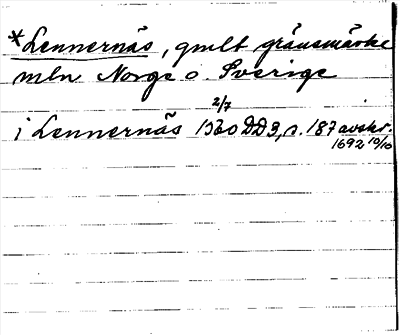 *Lennernäs, gmlt gränsmärke
mln Norge o. Sverige
2/7
i Lennernäs 1560 DD3, s. 187 avskr.
1692 10/10